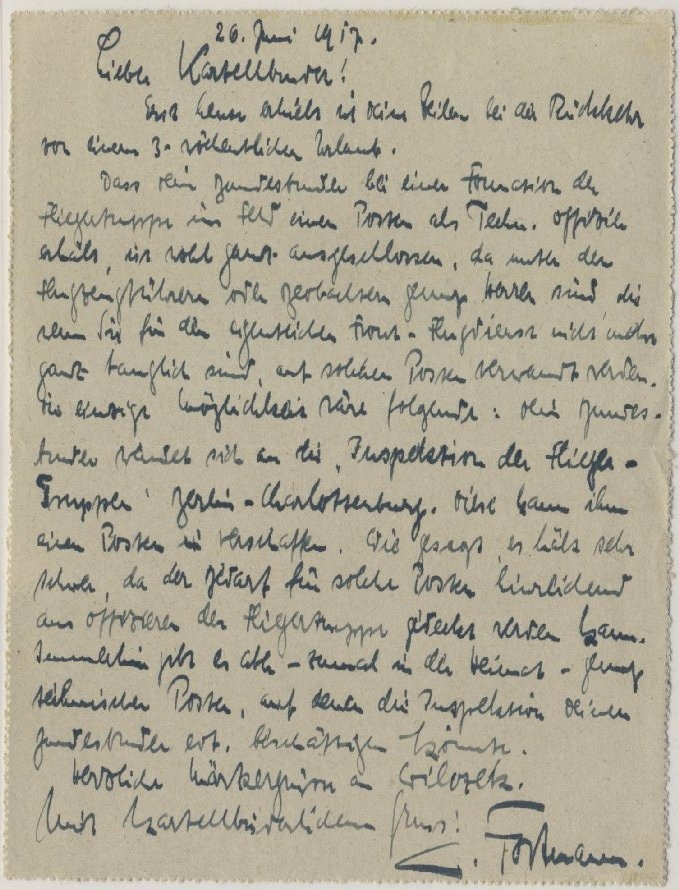 26. Juni 1917.
Lieber Kartellbruder!
Erst heute erhielt ich deine Zeilen bei der Rückkehr
von einem 3-wöchentlichen Urlaub.
Dass dein Bundesbruder bei einer Formation der
Fliegertruppe im Feld einen Posten als Techn. Offizier
erhält, ist wohl ganz ausgeschlossen, da unter den
Flugzeugführern oder Beobachtern genug Herren sind, die
wenn Sie für den eigentlichen Front-Flugdienst nicht mehr
ganz tauglich sind, auf solchen Posten verwandt werden.
Die einzige Möglichkeit wäre folgende: dein Bundes-
bruder wendet sich an die "Inspektion der Flieger-
Truppen" Berlin-Charlottenburg. Diese kann ihm
einen Posten verschaffen. Wie gesagt, es hält sehr
schwer, da der Bedarf für solche Posten hinreichend
aus Offizieren der Fliegertruppe gedeckt werden kann.
Immerhin gibt es aber - zumal in der Heimat - genug
technischer Posten, auf denen die Inspektion deinen
Bundesbruder evt. beschäftigen könnte.
Herzliche Märkergrüsse an
Mit kartellbrüderlichem Gruss!